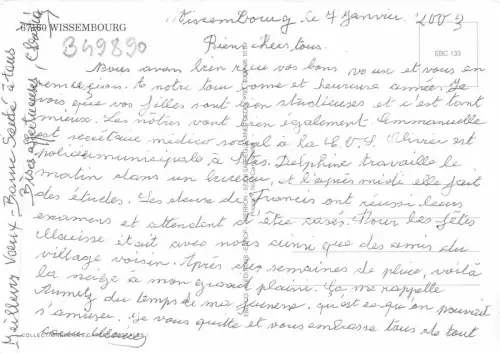 67160 WISSEMBOURG
349890
Wissembourg, le 7 Janvier 2003
EBC 133
Biens chers tous.
Nous avons bien reçu vos bons voeux et vous en
remercions. A notre tour bonne et heureuse année. Je
vois que vos filles sont bien studieuses et c'est tant
mieux. Les nôtres vont bien également. Emmanuelle
est secrétaire médico social à la Olivier est
policier municipale à Delphine travaille le
matin dans un bureau, et l'après midi elle fait
des études. Les deux de Francis ont réussi leurs
examens et attendent d'être casés. Pour les fêtes
était avec nous ainsi que des amis du
village voisin. Après des semaines de pluie, voilà
la neige à mon grand plaisir. Ca me rappelle
du temps de ma jeunesse, qu'est ce qu'on pouvait
s'amuser. Je vous quitte et vous embrasse tous de tout
coeur
Meilleurs Voeux - Bonne Santé à tous
Bises affectueuses,